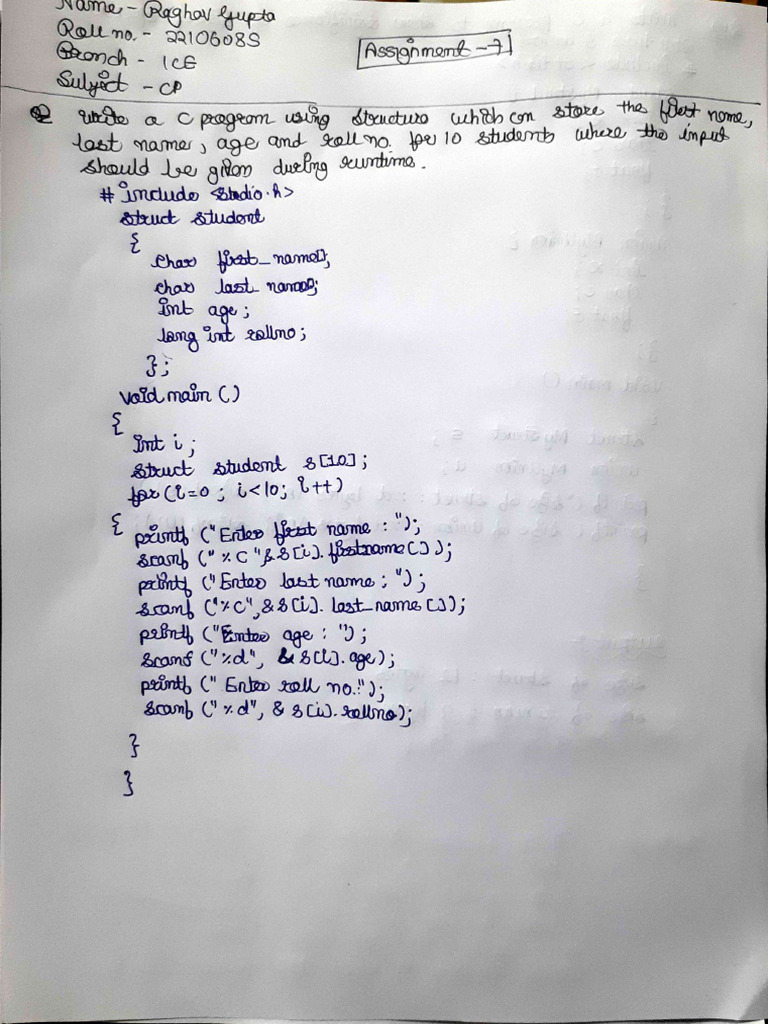 Name - Raghav Gupta
Roll no. - 22106085
Branch - ICE
Assignment - 7
Subject - CP
Q Write a C program using structure which can store the first name,
last name, age and roll no. for 10 students where the input
should be given during runtime.
# include <stdio.h>
struct student
{
char first_name[];
char last_name[];
int age;
long int rollno;
};
void main ()
{
int i;
struct student s[10];
for (i=0 ; i<10; i++)
{ printf ("Enter first name : ");
scanf ("%c"& s[i]. firstname[]);
printf ("Enter last name : ");
scanf ("%c", & s[i]. last_name[]);
printf ("Enter age : ");
scanf ("%d", & s[i].age);
printf (" Enter roll no.:");
scanf ("%d", & s[i].rollno);
}
}